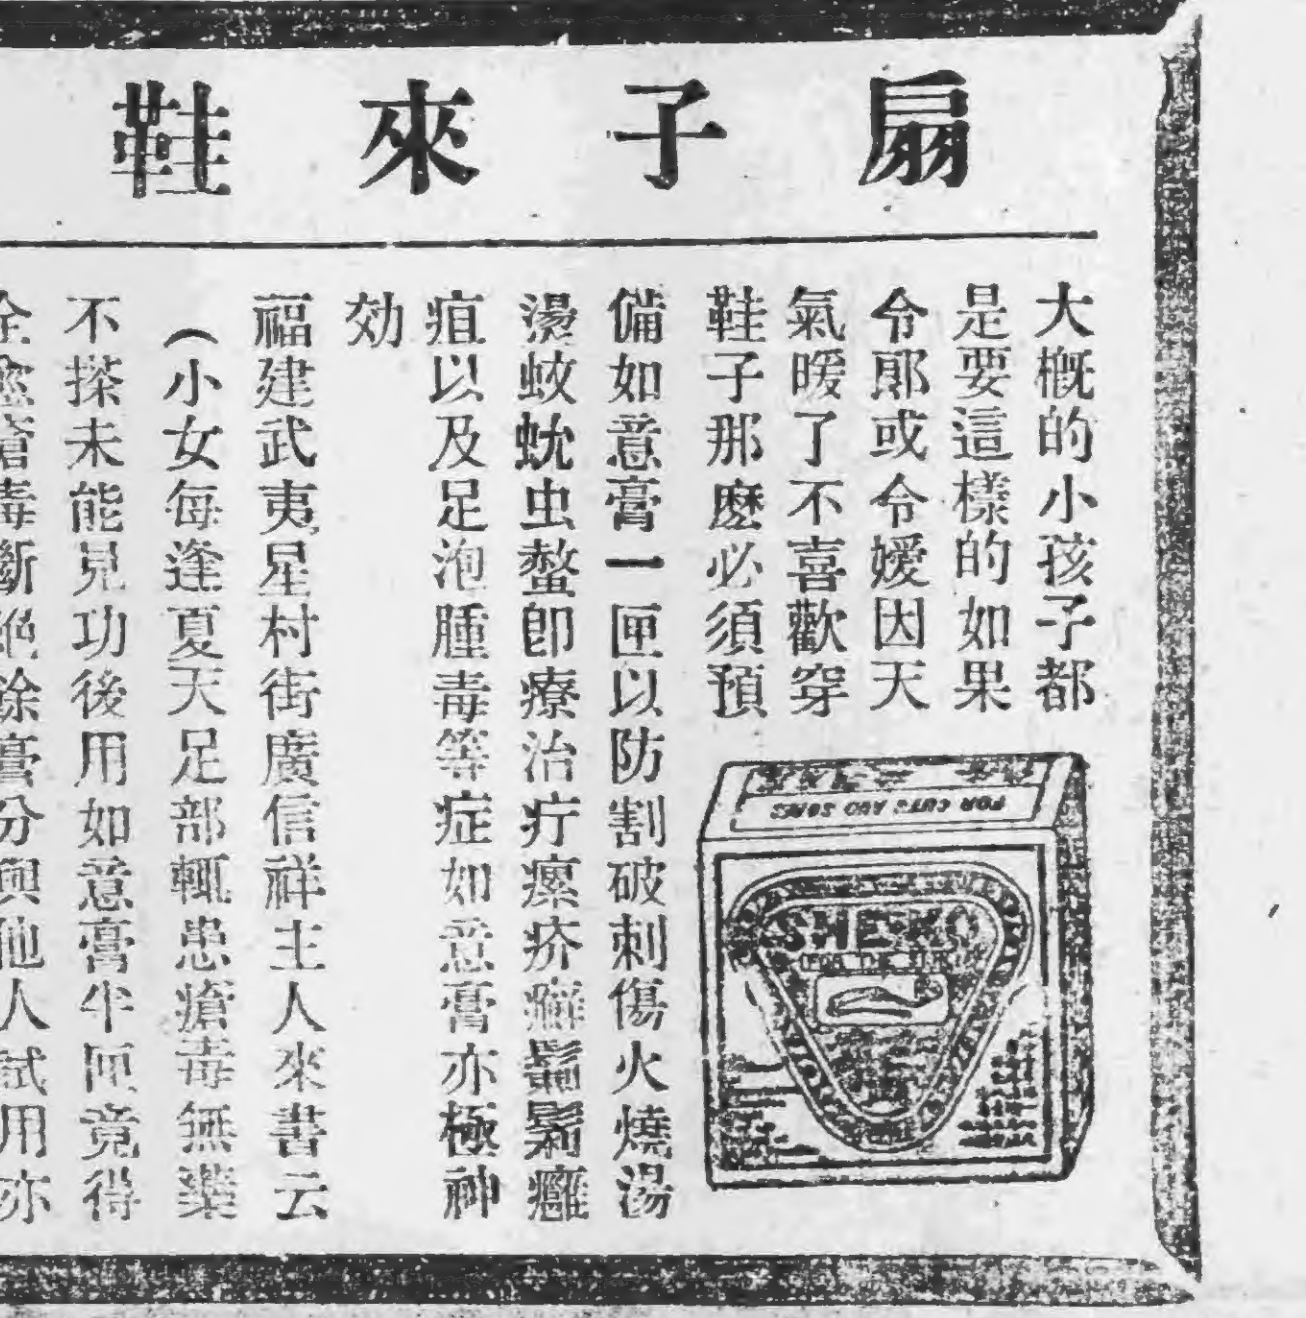 扇子來鞋
大概的小孩子都
是要這樣的如果
令郎或令嬡因天
氣暖了不喜歡穿
鞋子那麽必須預
備如意膏一匣以防割破刺傷火燒湯
燙蚊蚘虫螫卽療治疔瘰疥癬鬎鬁癰
疽以及足泡腫毒等症如意膏亦極神
効
福建武夷星村街廣信祥主人來書云
(小女每逢夏天足部輒患瘡毒無藥
不搽未能見功後用如意膏半匣竟得
全愈瘡毒斷絕餘膏分與他人試用亦
FOR CUTS AND SORES
SHE-KO
FOR THE SKIN